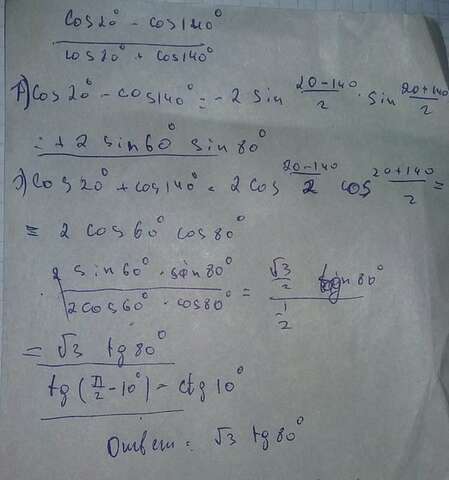 cos20° - cos140°
cos20° + cos140°
1) cos20° - cos140° = -2 sin (20-140)/2 · sin (20+140)/2
= +2 sin60° sin80°
2) cos20° + cos140° = 2 cos (20-140)/2 cos (20+140)/2 =
= 2 cos60° cos80°
2 sin60° · sin80° / 2cos60° · cos80° = √3/2 tg80° / 1/2
= √3 tg80°
tg(π/2 - 10°) - ctg10°
Ответ: √3 tg80°